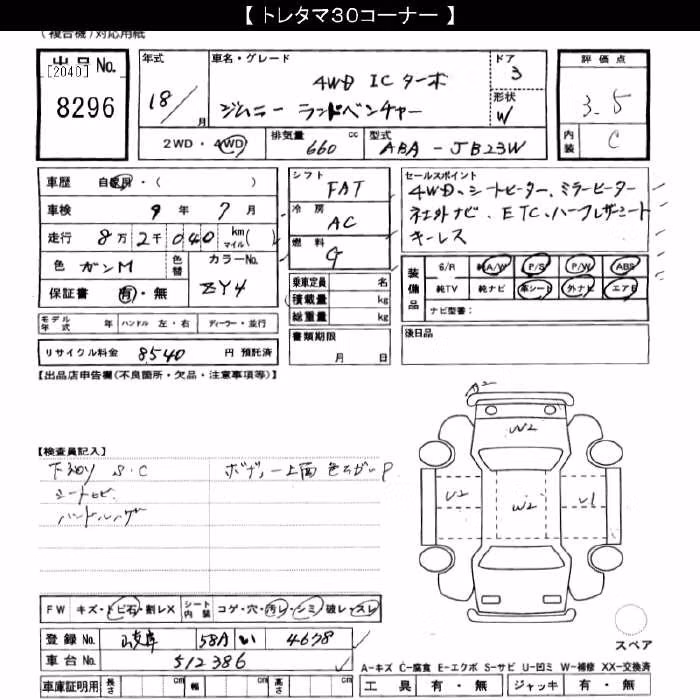 【 トレタマ30コーナー 】
(複合機)対応用紙
出品 No.
[2040]
8296
年式
18/
月
車名・グレード
4WD ICターボ
ジムニー ランドベンチャー
ドア
3
形状
W
評価点
3.5
内装
C
2WD・4WD
排気量
660
cc
型式
ABA-JB23W
車歴 自家用・( )
車検 9年 7月
走行 8万 2千 040 km マイル( )
色 ガンM
色替
カラーNo.
ZY4
保証書 有・無
シフト
FAT
冷房
AC
燃料
G
乗車定員 名
積載量 kg
総重量 kg
セールスポイント
4WD、シートヒーター、ミラーヒーター
社外ナビ、ETC、ハーフレザーシート
キーレス
装備品
S/R 純A/W P/S P/W ABS
純TV 純ナビ 革シート 外ナビ エアB
ナビ型番:
モデル年式 年 ハンドル 左・右 ディーラー・並行
リサイクル料金 8540 円 預託済
書類期限
月 日
後日品
【出品店申告欄(不良箇所・欠品・注意事項等)】
【検査員記入】
下廻り S・C
ボディー上面 色あせP
シートヒビ
A2
W2
U2
W2
U1
FW キズ・トビ石・割レX
シート内装
コゲ・穴・汚レ・シミ・破レ・スレ
登録 No. 岐阜 58A い 4678
車台 No. 512386
車庫証明用 長さ cm 幅 cm 高さ cm
スペア
A-キズ C-腐食 E-エクボ S-サビ U-凹ミ W-補修 XX-交換済
工具 有・無 ジャッキ 有・無